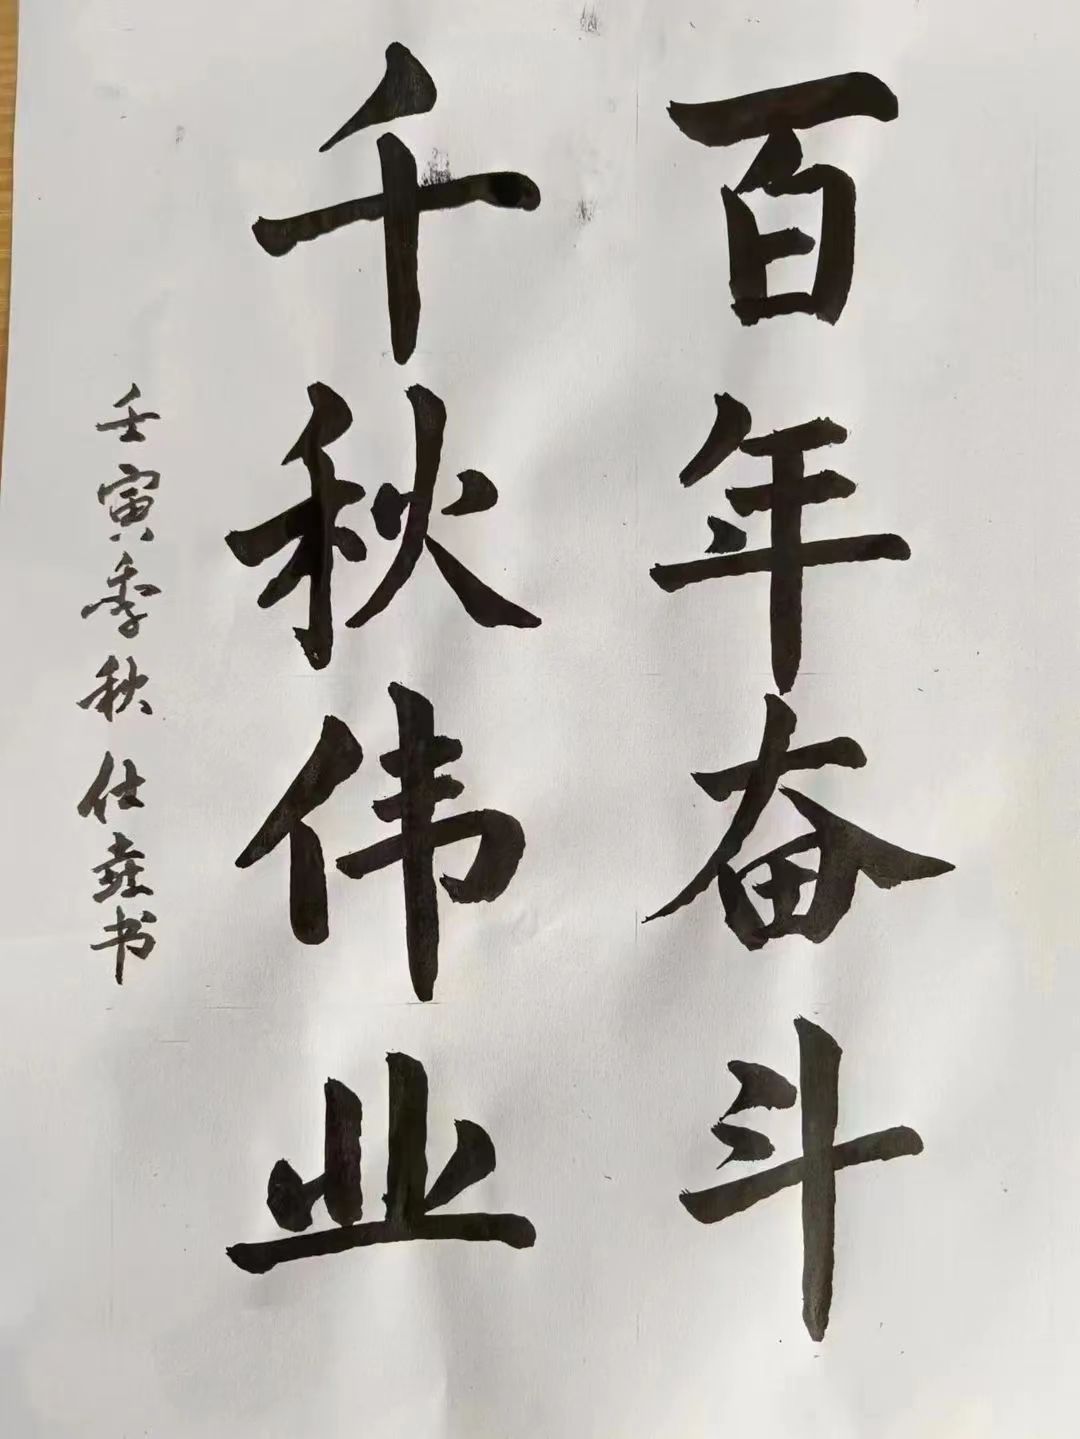 百年奋斗
千秋伟业
壬寅季秋仕垚书